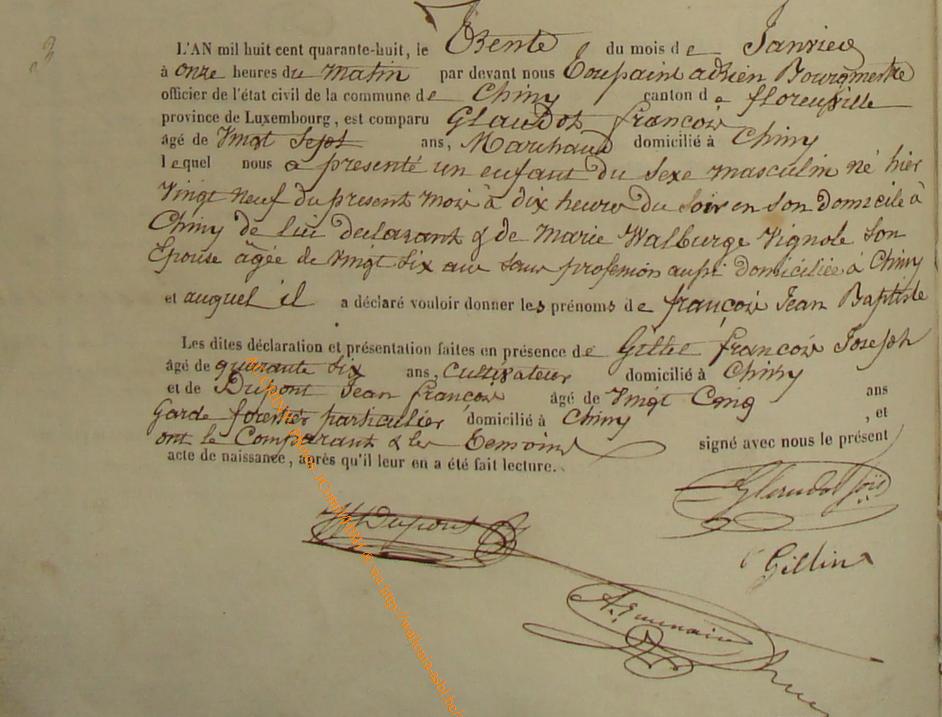 3
L'AN mil huit cent quarante-huit, le Trente du mois de Janvier
à onze heures du matin par devant nous Toupaint adrien Bourgmestre
officier de l'état civil de la commune de Chiny canton de florenville
province de Luxembourg, est comparu Glaudot françois
âgé de Vingt Sept ans, Marchand domicilié à Chiny
lequel nous a présenté un enfant du sexe masculin né hier
Vingt neuf du present mois à dix heures du soir en son domicile à
Chiny de lui declarant & de Marie Walburge Vignole son
Epouse âgée de vingt six ans sans profession aussi domiciliée à Chiny
et auquel il a déclaré vouloir donner les prénoms de françois Jean Baptiste
Les dites déclaration et présentation faites en présence de françois Joseph
âgé de quarante six ans, Cultivateur domicilié à Chiny
et de Dupont Jean françois âgé de Vingt Cinq ans
Garde forestier particulier domicilié à Chiny , et
ont le Comparant & les Temoins signé avec nous le présent
acte de naissance, après qu'il leur en a été fait lecture.
Glaudot fçois
Dupont
Gillin